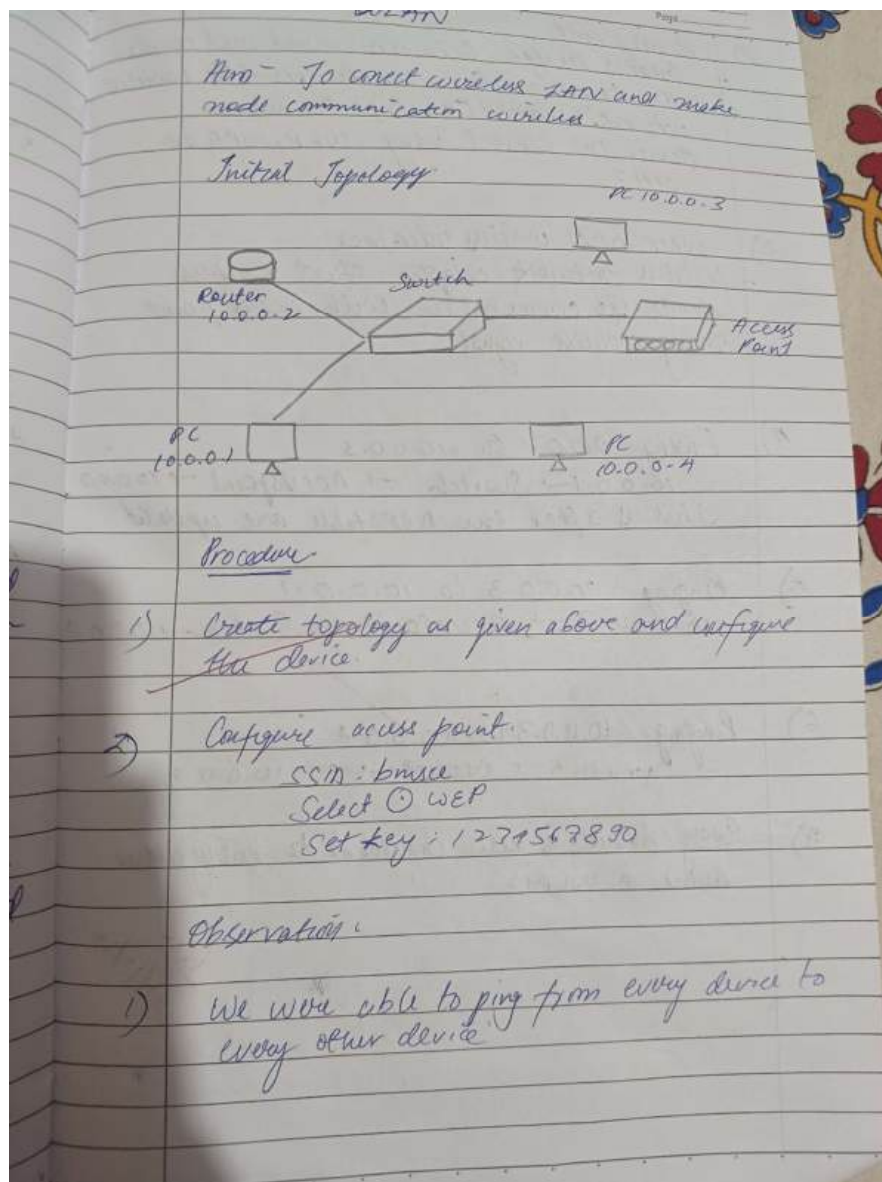 WLAN
Page
Aim - To conect wireless LAN and make
node communication wireless
Initial Topology
PC 10.0.0.3
Switch
Router
10.0.0.2
Access
Point
PC
10.0.0.1
PC
10.0.0.4
Procedure
1) Create topology as given above and configure
the device.
2) Configure access point.
SSID : bmsce
Select WEP
Set key : 1234567890
Observation :
1) We were able to ping from every device to
every other device